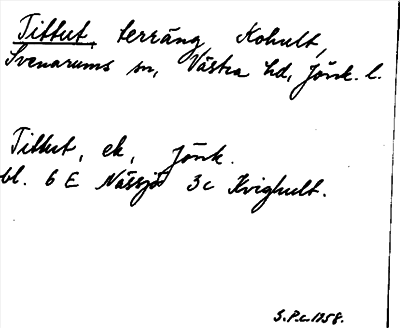 Tittut, terräng Kohult,
Svenarums sn, Västra hd, Jönk. l.
Tittut, ek, Jönk.
bl. 6 E Nässjö 3c Kvighult.
S.P.c. 1758.